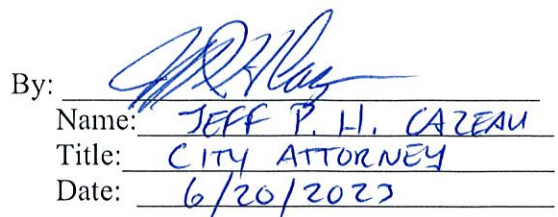 By:
Name: JEFF P. H. CAZEAU
Title: CITY ATTORNEY
Date: 6/20/2023